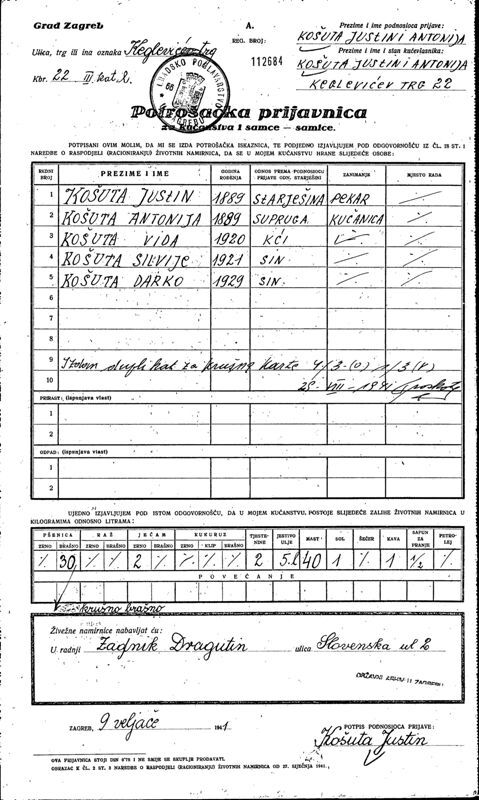 Grad Zagreb
A.
Prezime i ime podnosioca prijave:
KOŠUTA JUSTIN I ANTONIJA
Ulica, trg ili ina oznaka Keglevićev trg
REG. BROJ:
112684
Prezime i ime i stan kućevlasnika:
KOŠUTA JUSTIN I ANTONIJA
Kbr. 22 III. kat. 2.
KEGLEVIĆEV TRG 22
GRADSKO POGLAVARSTVO
Potrošačka prijavnica
za kućanstva i samce — samice.
POTPISANI OVIM MOLIM, DA MI SE IZDA POTROŠAČKA ISKAZNICA, TE PODJEDNO IZJAVLJUJEM POD ODGOVORNOŠĆU IZ ČL. 28 ST. 1
NAREDBE O RASPODJELI (RACIONIRANJU) ŽIVOTNIH NAMIRNICA, DA SE U MOJEM KUĆANSTVU HRANE SLIJEDEĆE OSOBE:
REDNI BROJ PREZIME I IME GODINA ROĐENJA ODNOS PREMA PODNOSIOCU PRIJAVE ODN. STARJEŠINI ZANIMANJE MJESTO RADA
1 KOŠUTA JUSTIN 1889 STARJEŠINA PEKAR
2 KOŠUTA ANTONIJA 1889 SUPRUGA KUĆANICA
3 KOŠUTA VIDA 1920 KĆI
4 KOŠUTA SILVIJE 1921 SIN
5 KOŠUTA DARKO 1929 SIN
6
7
8
9 duplikat za krušne karte 4/3-(0) 1/3(V)
10 28-VIII-1941
PRIRAST: (ispunjava vlast)
1
2
OTPAD: (ispunjava vlast)
1
2
UJEDNO IZJAVLJUJEM POD ISTOM ODGOVORNOŠĆU, DA U MOJEM KUĆANSTVU POSTOJE SLIJEDEĆE ZALIHE ŽIVOTNIH NAMIRNICA U
KILOGRAMIMA ODNOSNO LITRAMA:
PŠENICA RAŽ JEČAM KUKURUZ TJESTENINE JESTIVO ULJE MAST SOL ŠEĆER KAVA SAPUN ZA PRANJE PETROLEJ
ZRNO BRAŠNO ZRNO BRAŠNO ZRNO BRAŠNO ZRNO KLIP BRAŠNO
% 30 % % 2 % % % % 2 5.l 40 1 % 1 1/2 %
POVEĆANJE
krušno brašno
Živežne namirnice nabavljat ću:
U radnji Zadnik Dragutin ulica Slovenska ul 2
ZAGREB, 9 veljače 1941
POTPIS PODNOSIOCA PRIJAVE:
Košuta Justin
OVA PRIJAVNICA STOJI DIN 0'75 I NE SMIJE SE SKUPLJE PRODAVATI.
OBRAZAC K ČL. 2 ST. 2 NAREDBE O RASPODJELI (RACIONIRANJU) ŽIVOTNIH NAMIRNICA OD 27. SIJEČNJA 1941.